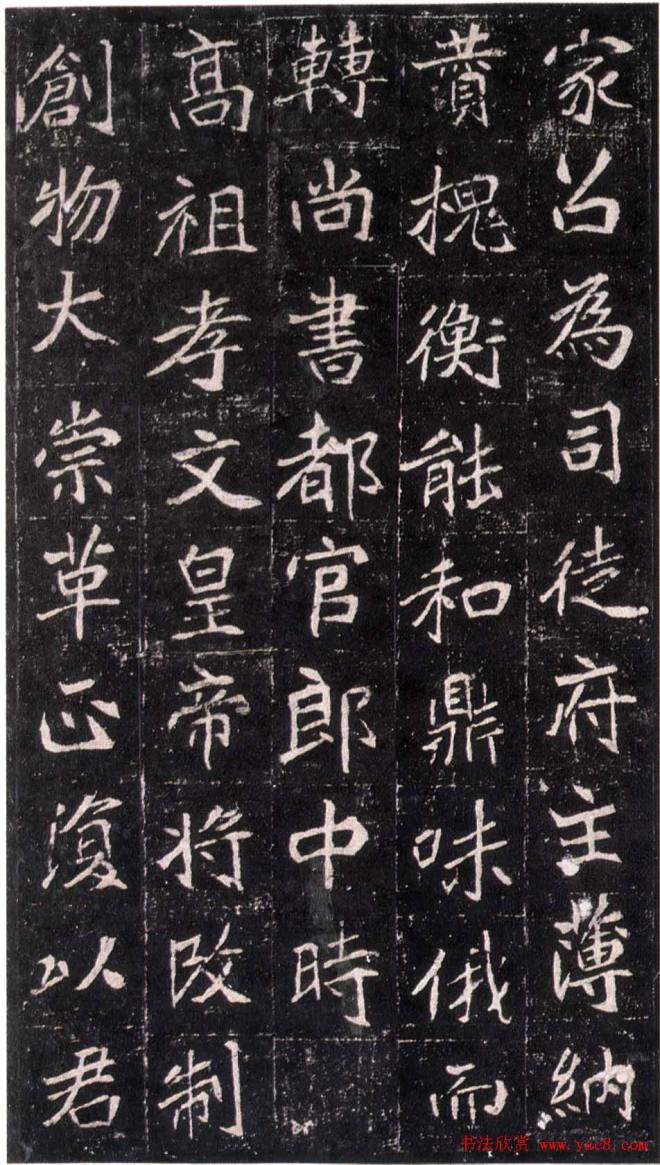 家公為司徒府主薄納
賛槐衡能和鼎味俄而
轉尚書都官郎中時
髙祖孝文皇帝將改制
創物大崇革正復以君
书法欣赏 www.yac8.com